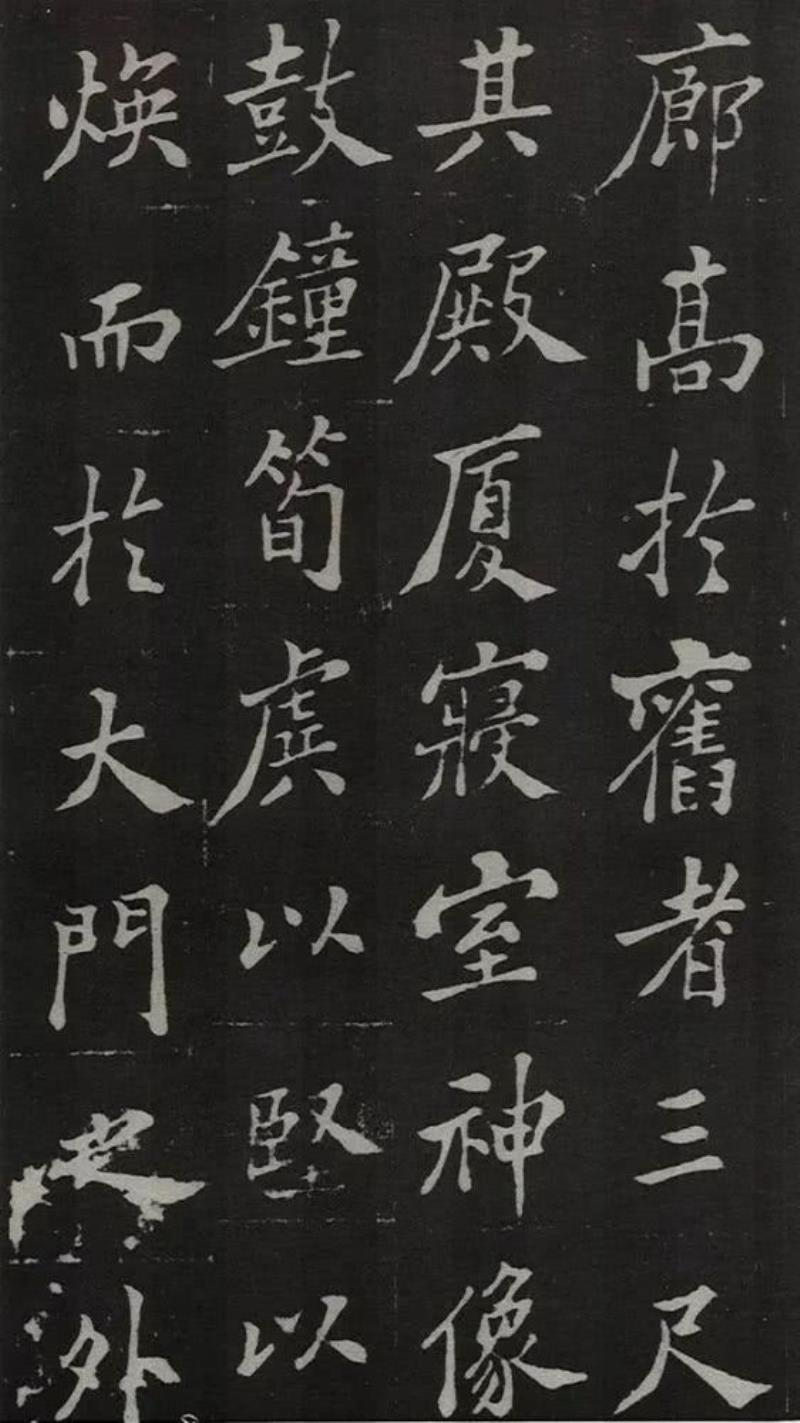 廊高於舊者三尺
其殿厦寢室神像
鼓鐘筍虡以堅以
煥而於大門之外